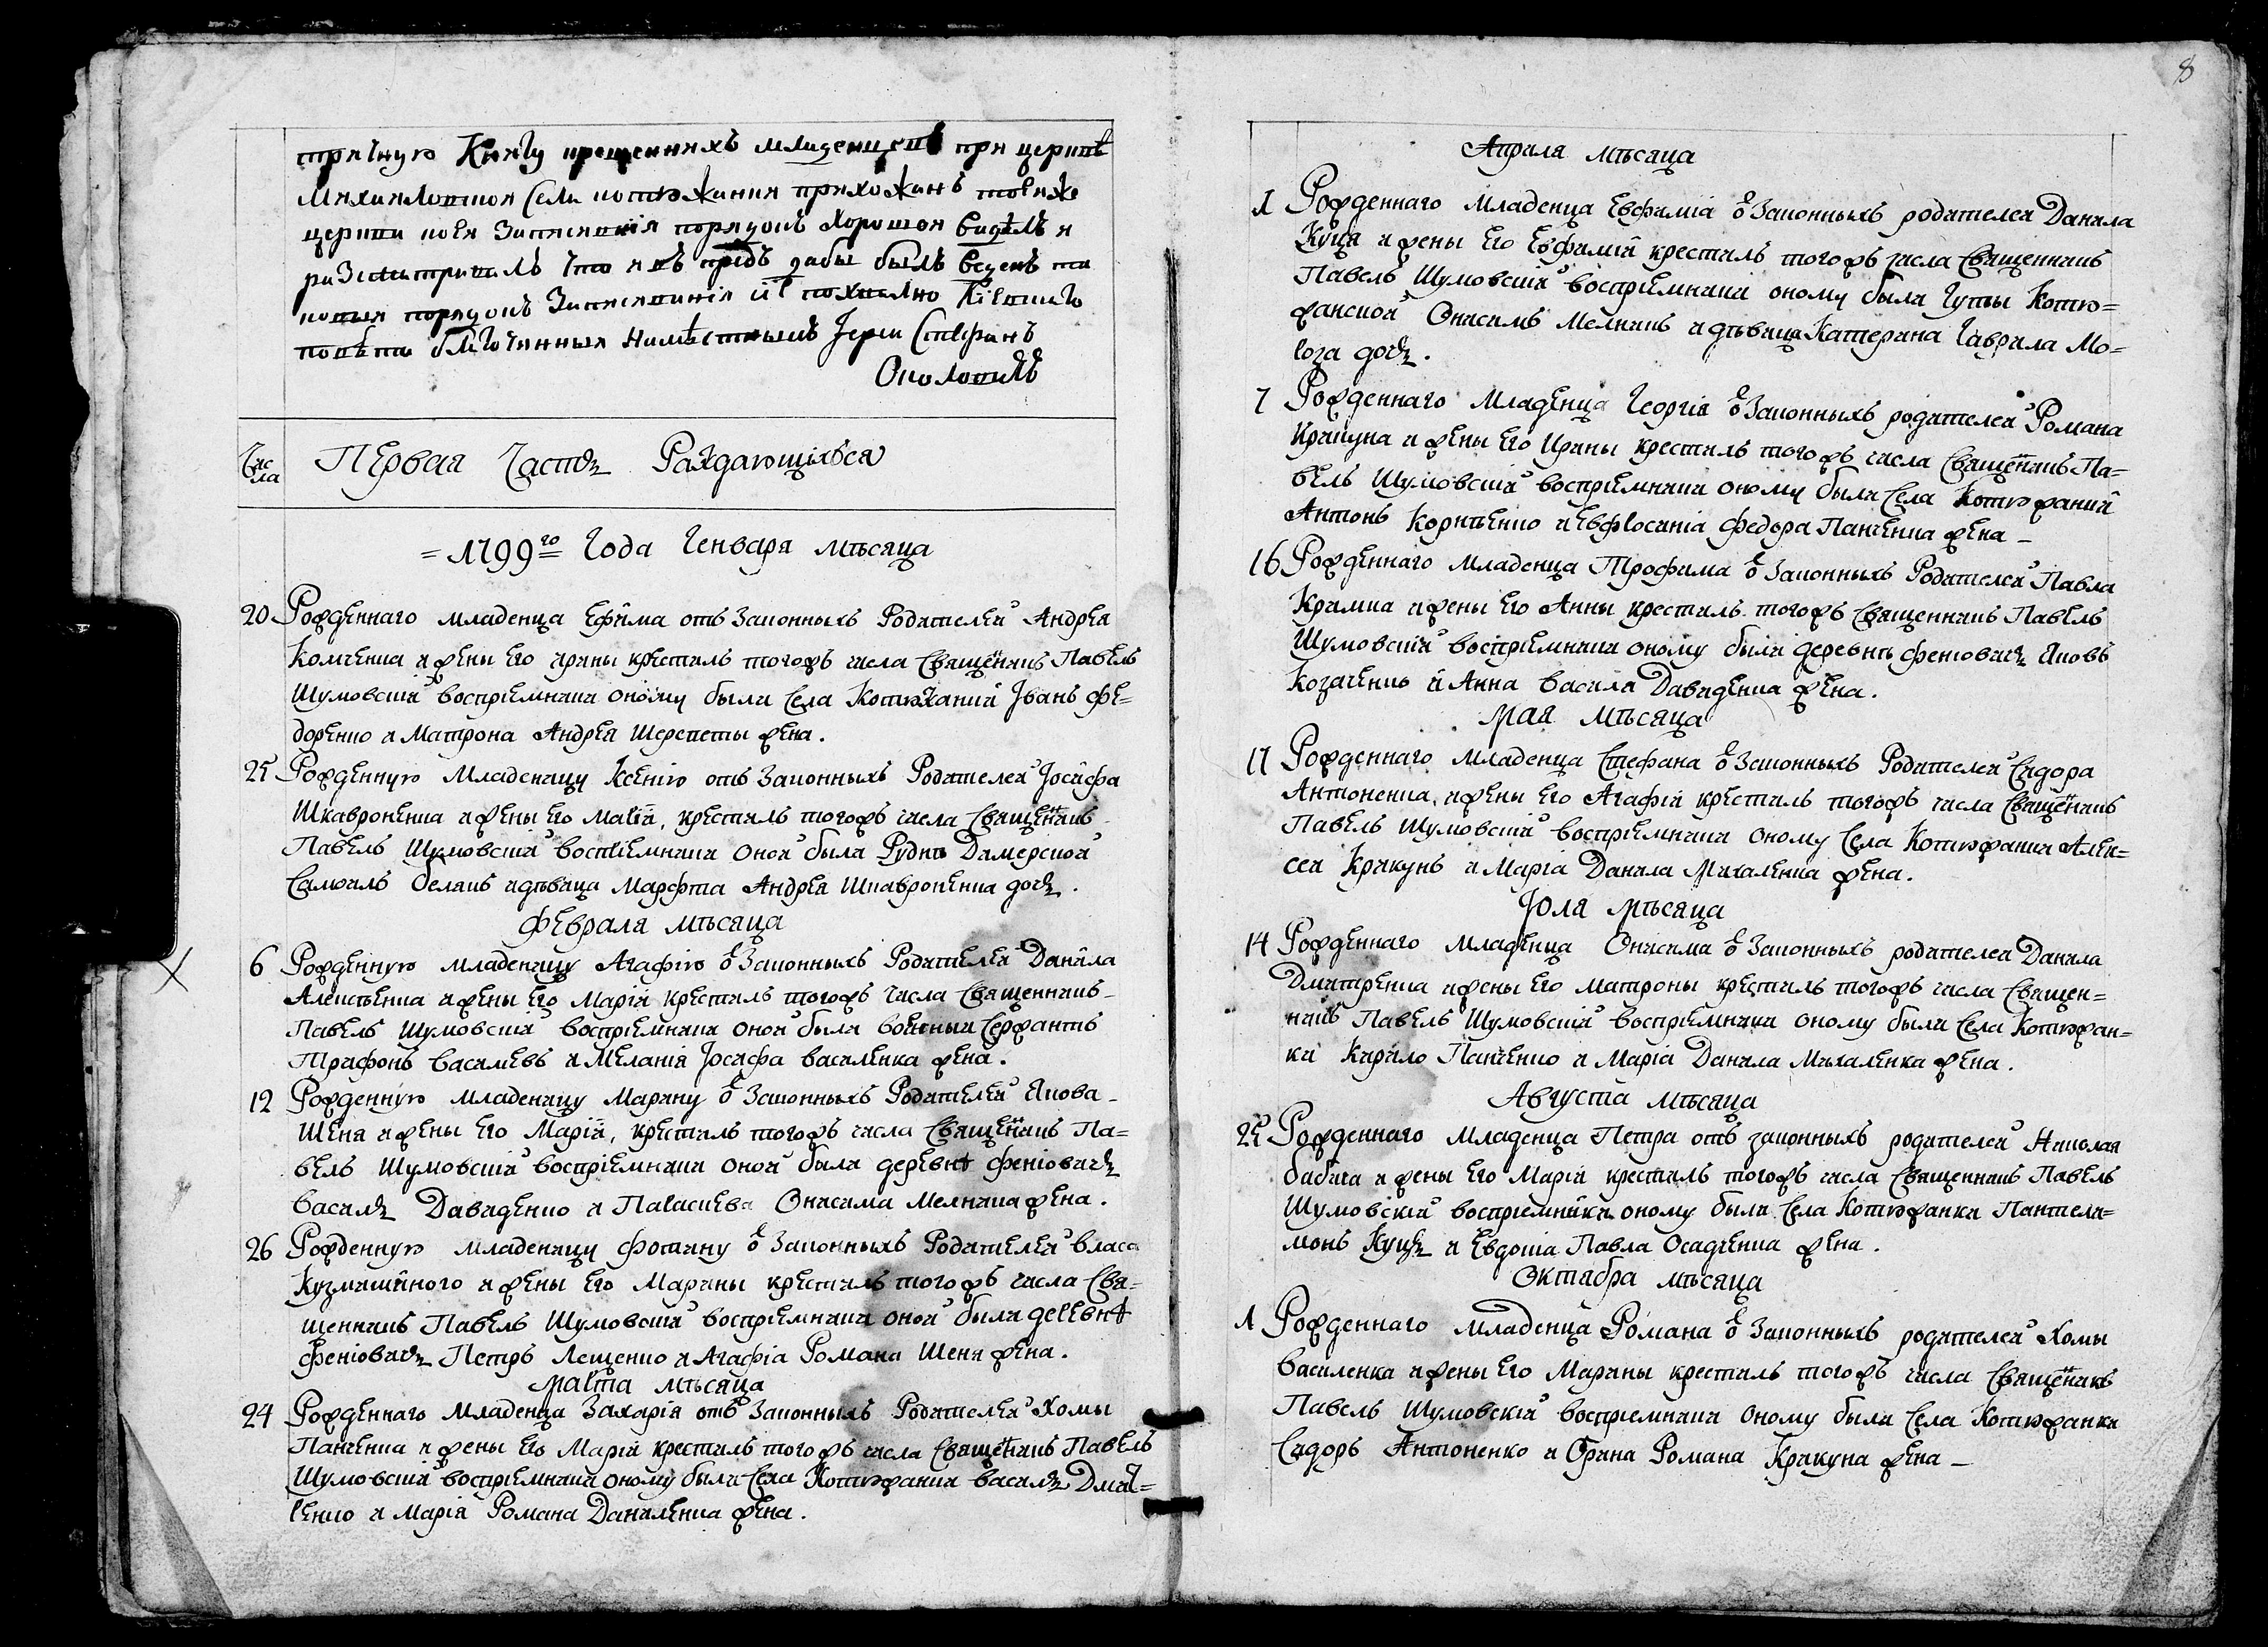 тричную Книгу крещенныхъ младенцевъ при церквѣ
Михайловской Села котюжанки прихожанъ тоеяже
церкви коея Записанія порядокъ хорошой видѣлъ и
разсматривалъ что и въ предъ дабы былъ веденъ та
ковыя порядокъ Записыванія
Стефанъ
Чис
ла
Первая Часть Раждающихься
= 1799го Года Генваря мѣсяца
20 Рожденнаго младенца Ефима отъ Законныхъ Родителей Андрея
Комченка и жены Его ирины крестилъ тогожъ числа Священникъ Павелъ
Шумовскій воспріемники оному были Села Котюжанки Іванъ Фе=
доренко и Матрона Андрея Шерепеты жена.
25 Рожденную Младеницу Ксенію отъ Законныхъ Родителей Іосифа
Шкавроненка и жены Его Маріи, крестилъ тогожъ числа Священникъ
Павелъ Шумовскій воспріемники оной были Рудни Димерской
Самоилъ белякъ идѣвица Марфта Андрея Шкавроненка дочь.
Февраля мѣсяца
6 Рожденную младеницу Агафію отъ Законныхъ Родителей Данила
Алексѣенка и жены Его Маріи крестилъ тогожъ числа Священникъ
Павелъ Шумовскій воспріемники оной были военный Сержантъ
Трифонъ василіевъ и Меланія Іосифа василенка жена.
12 Рожденную младеницу Марину отъ Законныхъ Родителей Якова
Шеня и жены Его Маріи, крестилъ тогожъ числа Священникъ Па=
велъ Шумовскій воспріемники оной были деревнѣ Феніовичь
Василь Давиденко и Параскева Онисима Мелника жена.
26 Рожденную младеницу Фотину отъ Законныхъ Родителей власа
Кузмишиного и жены Его Марины крестилъ тогожъ числа Свя=
щенникъ Павелъ Шумовскій воспріемники оной были деревнѣ
Феніовичь Петръ Лещенко и Агафія Романа Шеня жена.
Марта мѣсяца
24 Рожденнаго Младенца Захарія отъ Законныхъ Родителей Хомы
Панченка и жены Его Маріи крестилъ тогожъ числа Священникъ Павелъ
Шумовскій воспріемники оному были Села Котюжанки василь Дмит=
ренко и Марія Романа Даниленка жена.
8
Априля мѣсяца
1 Рожденнаго младенца Евфимія отъ Законныхъ родителей Данила
Куця и жены Его Евфиміи крестилъ тогожъ числа Священникъ
Павелъ Шумовскій воспріемники оному были Гуты Котю=
жанской Онисимъ Мелникъ и дѣвица Катерина Гаврила Мо=
роза дочь.
7 Рожденнаго Младенца Георгія отъ Законныхъ родителей Романа
Кракуна и жены Его Ирины крестилъ тогожъ числа Священникъ Па=
велъ Шумовскій воспріемники оному были Села Котюжанки
Антонъ Корнѣенко и Евфросинія Федора Панченка жена _
16 Рожденнаго младенца Трофима отъ Законныхъ Родителей Павла
Климка и жены Его Анны крестилъ тогожъ Священникъ Павелъ
Шумовскій воспріемники оному были деревнѣ Феніовичь Яковъ
Козаченко и Анна василя Давиденка жена.
Мая мѣсяца
17 Рожденнаго младенца Стефана отъ Законныхъ Родителей Сидора
Антоненка и жены Его Агафіи крестилъ тогожъ числа Священникъ
Павелъ Шумовскій воспріемники оному Села Котюжанки Алек=
сей Кракунъ и Марта Данила Михаленка жена.
Іюля мѣсяца
14 Рожденнаго младенца Онисима отъ Законныхъ родителей Данила
Дмитренка и жены Его матроны крестилъ тогожъ числа Священ=
никъ Павелъ Шумовскій воспріемники оному были Села Котюжан=
ки Кирило Панченко и Марія Данила Михаленка жена.
Августа мѣсяца
25 Рожденнаго Младенца Петра отъ законныхъ родителей Николая
бабича и жены Его Маріи крестилъ тогожъ числа Священникъ Павелъ
Шумовскій воспріемники оному были Села Котюжанки Пантели=
монъ Куць и Евдокія Павла Осадченка жена.
Октября мѣсяца
1 Рожденнаго Младенца Романа отъ Законныхъ родителей Хомы
василенка и жены Его Марины крестилъ тогожъ числа Священикъ
Павелъ Шумовскій воспріемники оному были Села Котюжанки
Сидоръ Антоненко и Орина Романа Кракуна жена _